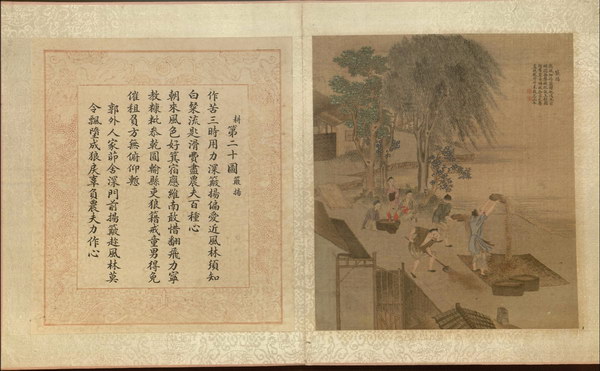 耕
第二十圖 簸揚
作苦三時用力深簸揚偏愛近風林須知
白粲流匙滑費盡農夫百種心
朝來風色好箕宿應維南敢惜翻飛力寧
教糠粃參乾圓輸縣吏狼籍戒童男得免
催租負方無俯仰慙
郭外人家茆舍深門前揚簸趁風林莫
令飄墮成狼戾辜負農夫力作心